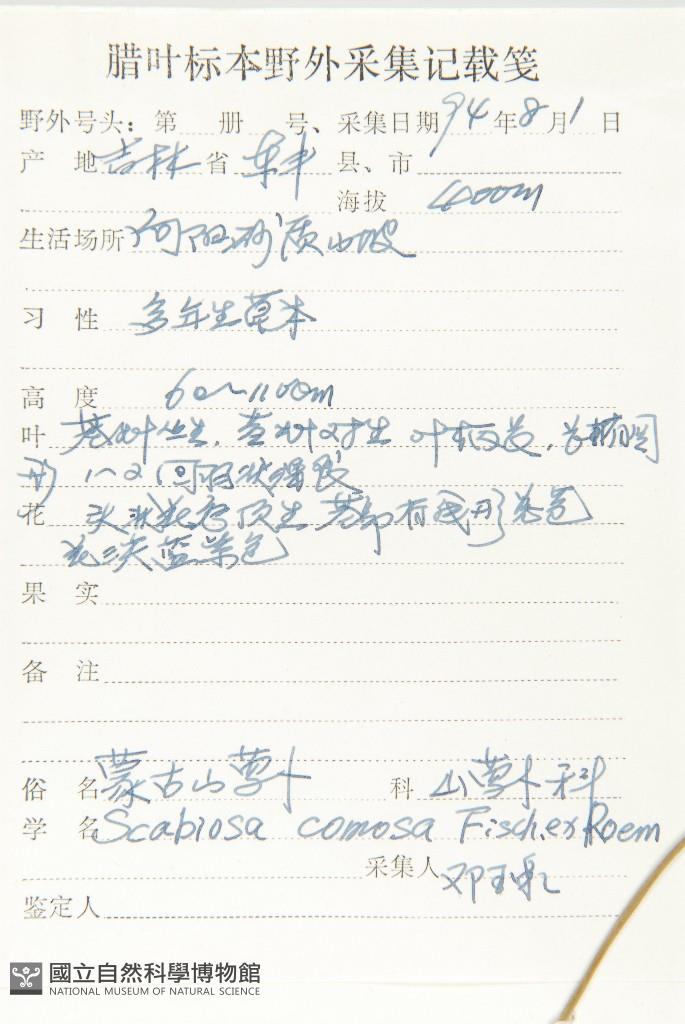 腊叶标本野外采集记载笺
野外号头：第 册 号、采集日期94年8月1日
产 地 吉林 省 东丰 县、市
海拔 400m
生活场所 向阳砂质山坡
习 性 多年生草本
高 度 60~110cm
叶 基叶丛生，茎叶对生 叶柄
形 1~2回羽状深裂
花 头状花序顶生 基部有线形总苞
花 蓝紫色
果 实
备 注
俗 名 蒙古山萝卜 科 山萝卜科
学 名 Scabiosa comosa Fischer Roem
采集人 邓玉
鉴定人
國立自然科學博物館
NATIONAL MUSEUM OF NATURAL SCIENCE